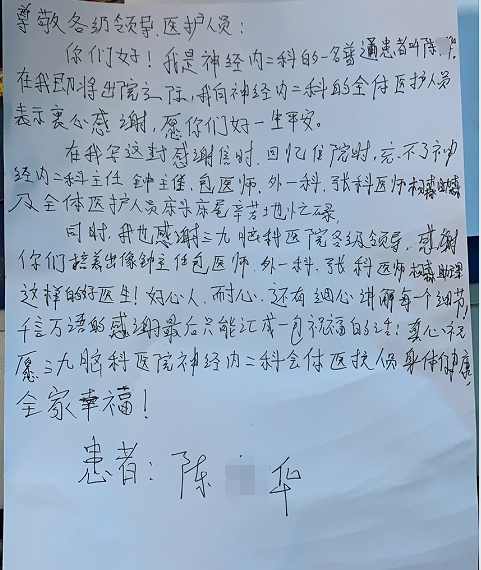 尊敬各级领导、医护人员:
你们好!我是神经内二科的一名普通患者叫陈
在我即将出院之际,我向神经内二科的全体医护人员
表示衷心感谢,愿你们好一生平安。
在我写这封感谢信时,回忆住院时,忘不了神
经内二科主任 钟主任、包医师、外一科、张科医师
及全体医护人员床头床尾辛苦地忙碌,
同时,我也感谢三九脑科医院各级领导,感谢
你们培养出像钟主任包医师、外一科、张科医师
这样的好医生!好心人、耐心、还有细心讲解每一个细节,
千言万语的感谢最后只能汇成一包祝福的话!真心祝
愿三九脑科医院神经内二科全体医护人员身体健康,
全家幸福!
患者:陈 华